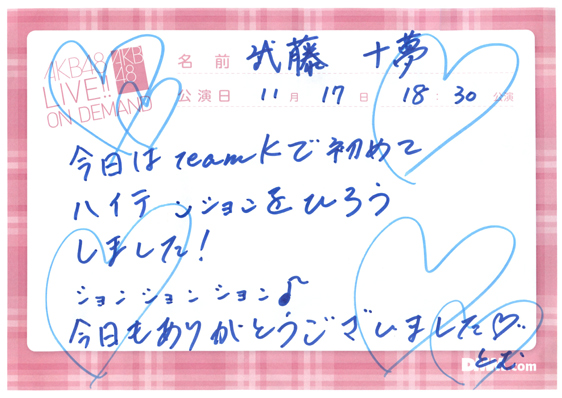 AKB48
LIVE!!
ON DEMAND
AKB
48
名前 武藤 十夢
公演日 11月 17日 18:30 公演
今日はteamKで初めて
ハイテンションをひろう
しました!
ションションション♪
今日もありがとうございました♡
とむ
.com